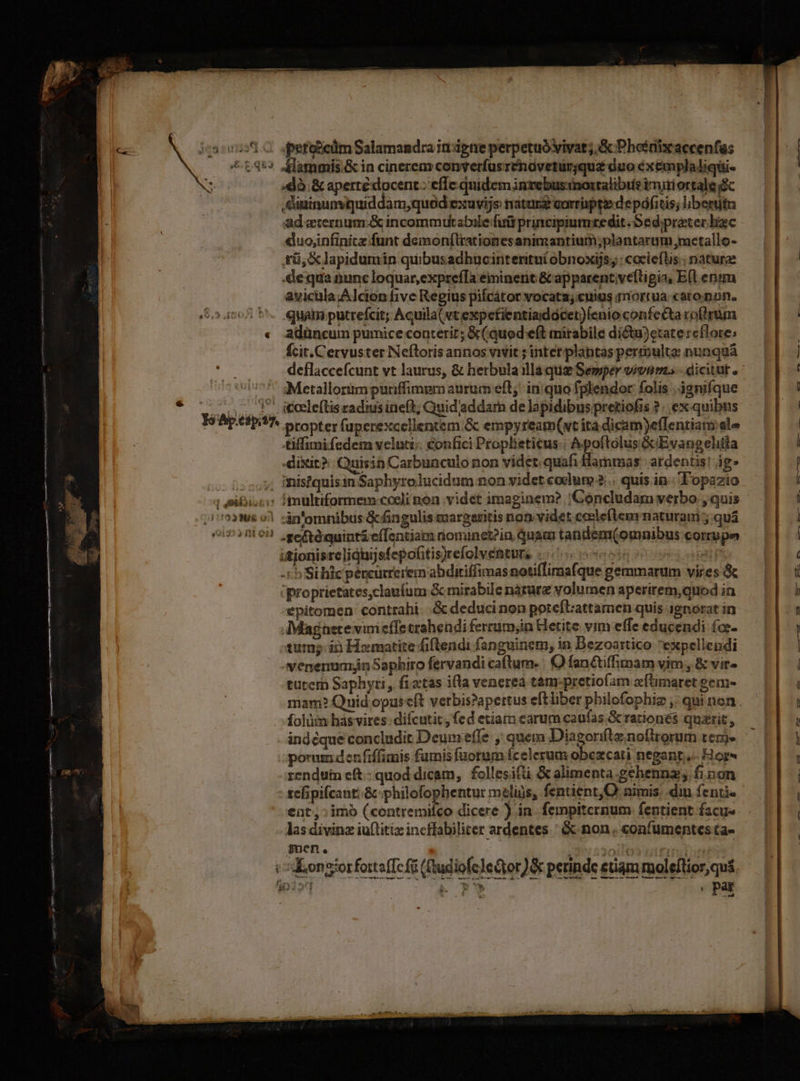 peto? cùm Salamandra in igne perpetuò vivat; & Phœnix accensus
flammis & in cinerem conversus renovetur; quæ duo exempla liqui-
dò & apertè docent: esse quidem in rebus mortalibus immortale &c
divinum quiddam, quod exuvijs naturæ corruptæ depositis, libertim
ad æternum & incommutabile fuit principium redit. Sed præter hæc
duo, infinitæ sunt demonstrationes animantium, plantarum, metallo-
rũ, & lapidum in quibus adhuc interitui obnoxijs, cœlestis naturæ
de qua nunc loquar, expressa eminent & apparent vestigia, Est enim
avicula Alcion sive Regius piscator vocata, cuius mortua caro non.
quam putrescit; Aquila (vt experientia docet) senio confecta rostrum
« aduncum pumice conterit; & (quod est mirabile dictu) ętate reflore-
scit. Cervus ter Nestoris annos vivit; inter plantas permultæ nunquã
deflaccescunt vt laurus, & herbula illa quæ Semper vivum dicitur.
Metallorum purissimum aurum est, in quo splendor solis, ignisque
cœlestis radius inest, Quid addam de lapidibus pretiosis? ex quibus
propter superexcellentem & empyream (vt ità dicam) essentiam al-
tissimi sedem veluti confici Propheticus Apostolus & Evangelista
dixit? Quis in Carbunculo non videt quasi flammas ardentis ig-
nis? quis in Saphyro lucidum non videt cœlum? quis in Topazio
multiformem cœli non videt imaginem? Concludam verbo, quis
in omnibus & singulis margaritis non videt cœlestem naturam; quã
rectè quintã essentiam nominet? in quam tandem (omnibus corrup-
tionis reliquijs sepositis) resolventur.
Si hîc percurrerem abditissimas notissimasque gemmarum vires &
proprietates, clausum & mirabile naturæ volumen aperirem, quod in
epitomen contrahi & deduci non potest: attamen quis ignorat in
Magnete vim esse trahendi ferrum, in Hetite vim esse educendi fœ-
tum; in Hæmatite sistendi sanguinem, in Bezoartico expellendi
venenum, in Saphiro servandi castum. O sanctissimam vim, & vir-
tutem Saphyri, si ætas ista venerea tàm pretiosam æstimaret gem-
mam? Quid opus est verbis? apertus est liber philosophiæ, qui non
solùm has vires discutit, sed etiam earum causas & rationes quærit,
indéque concludit Deum esse, quem Diagoristæ nostrorum tem-
porum densissimis fumis suorum scelerum obcæcati negant. Hor-
rendum est quod dicam, folles isti & alimenta gehennæ, si non
resipiscant & philosophentur meliùs, sentient, O nimis diu senti-
ent, imò (contremisco dicere) in sempiternum sentient facu-
las divinæ iustitiæ ineffabiliter ardentes & non consumentes ta-
men.
Longior fortasse sũ (studiose lector) & perinde etiam molestior, quã
par